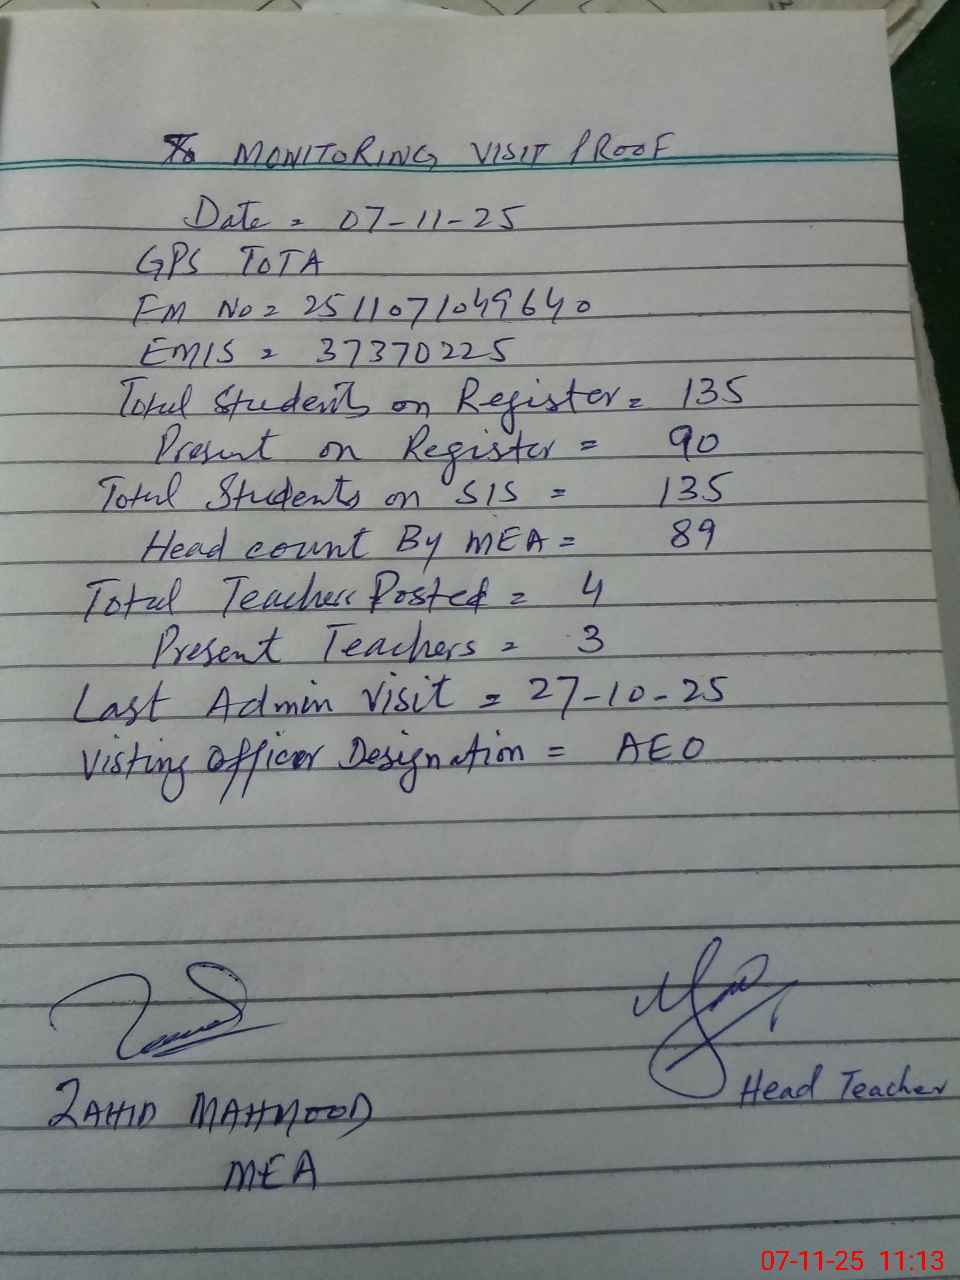 MONITORING VISIT PROOF
Date = 07-11-25
GPS TOTA
FM No = 2511071049640
EMIS = 37370225
Total Students on Register = 135
Present on Register = 90
Total Students on SIS = 135
Head count By MEA = 89
Total Teachers Posted = 4
Present Teachers = 3
Last Admin Visit = 27-10-25
Visting Officer Designation = AEO
Head Teacher
ZAHID MAHMOOD
MEA
07-11-25 11:13